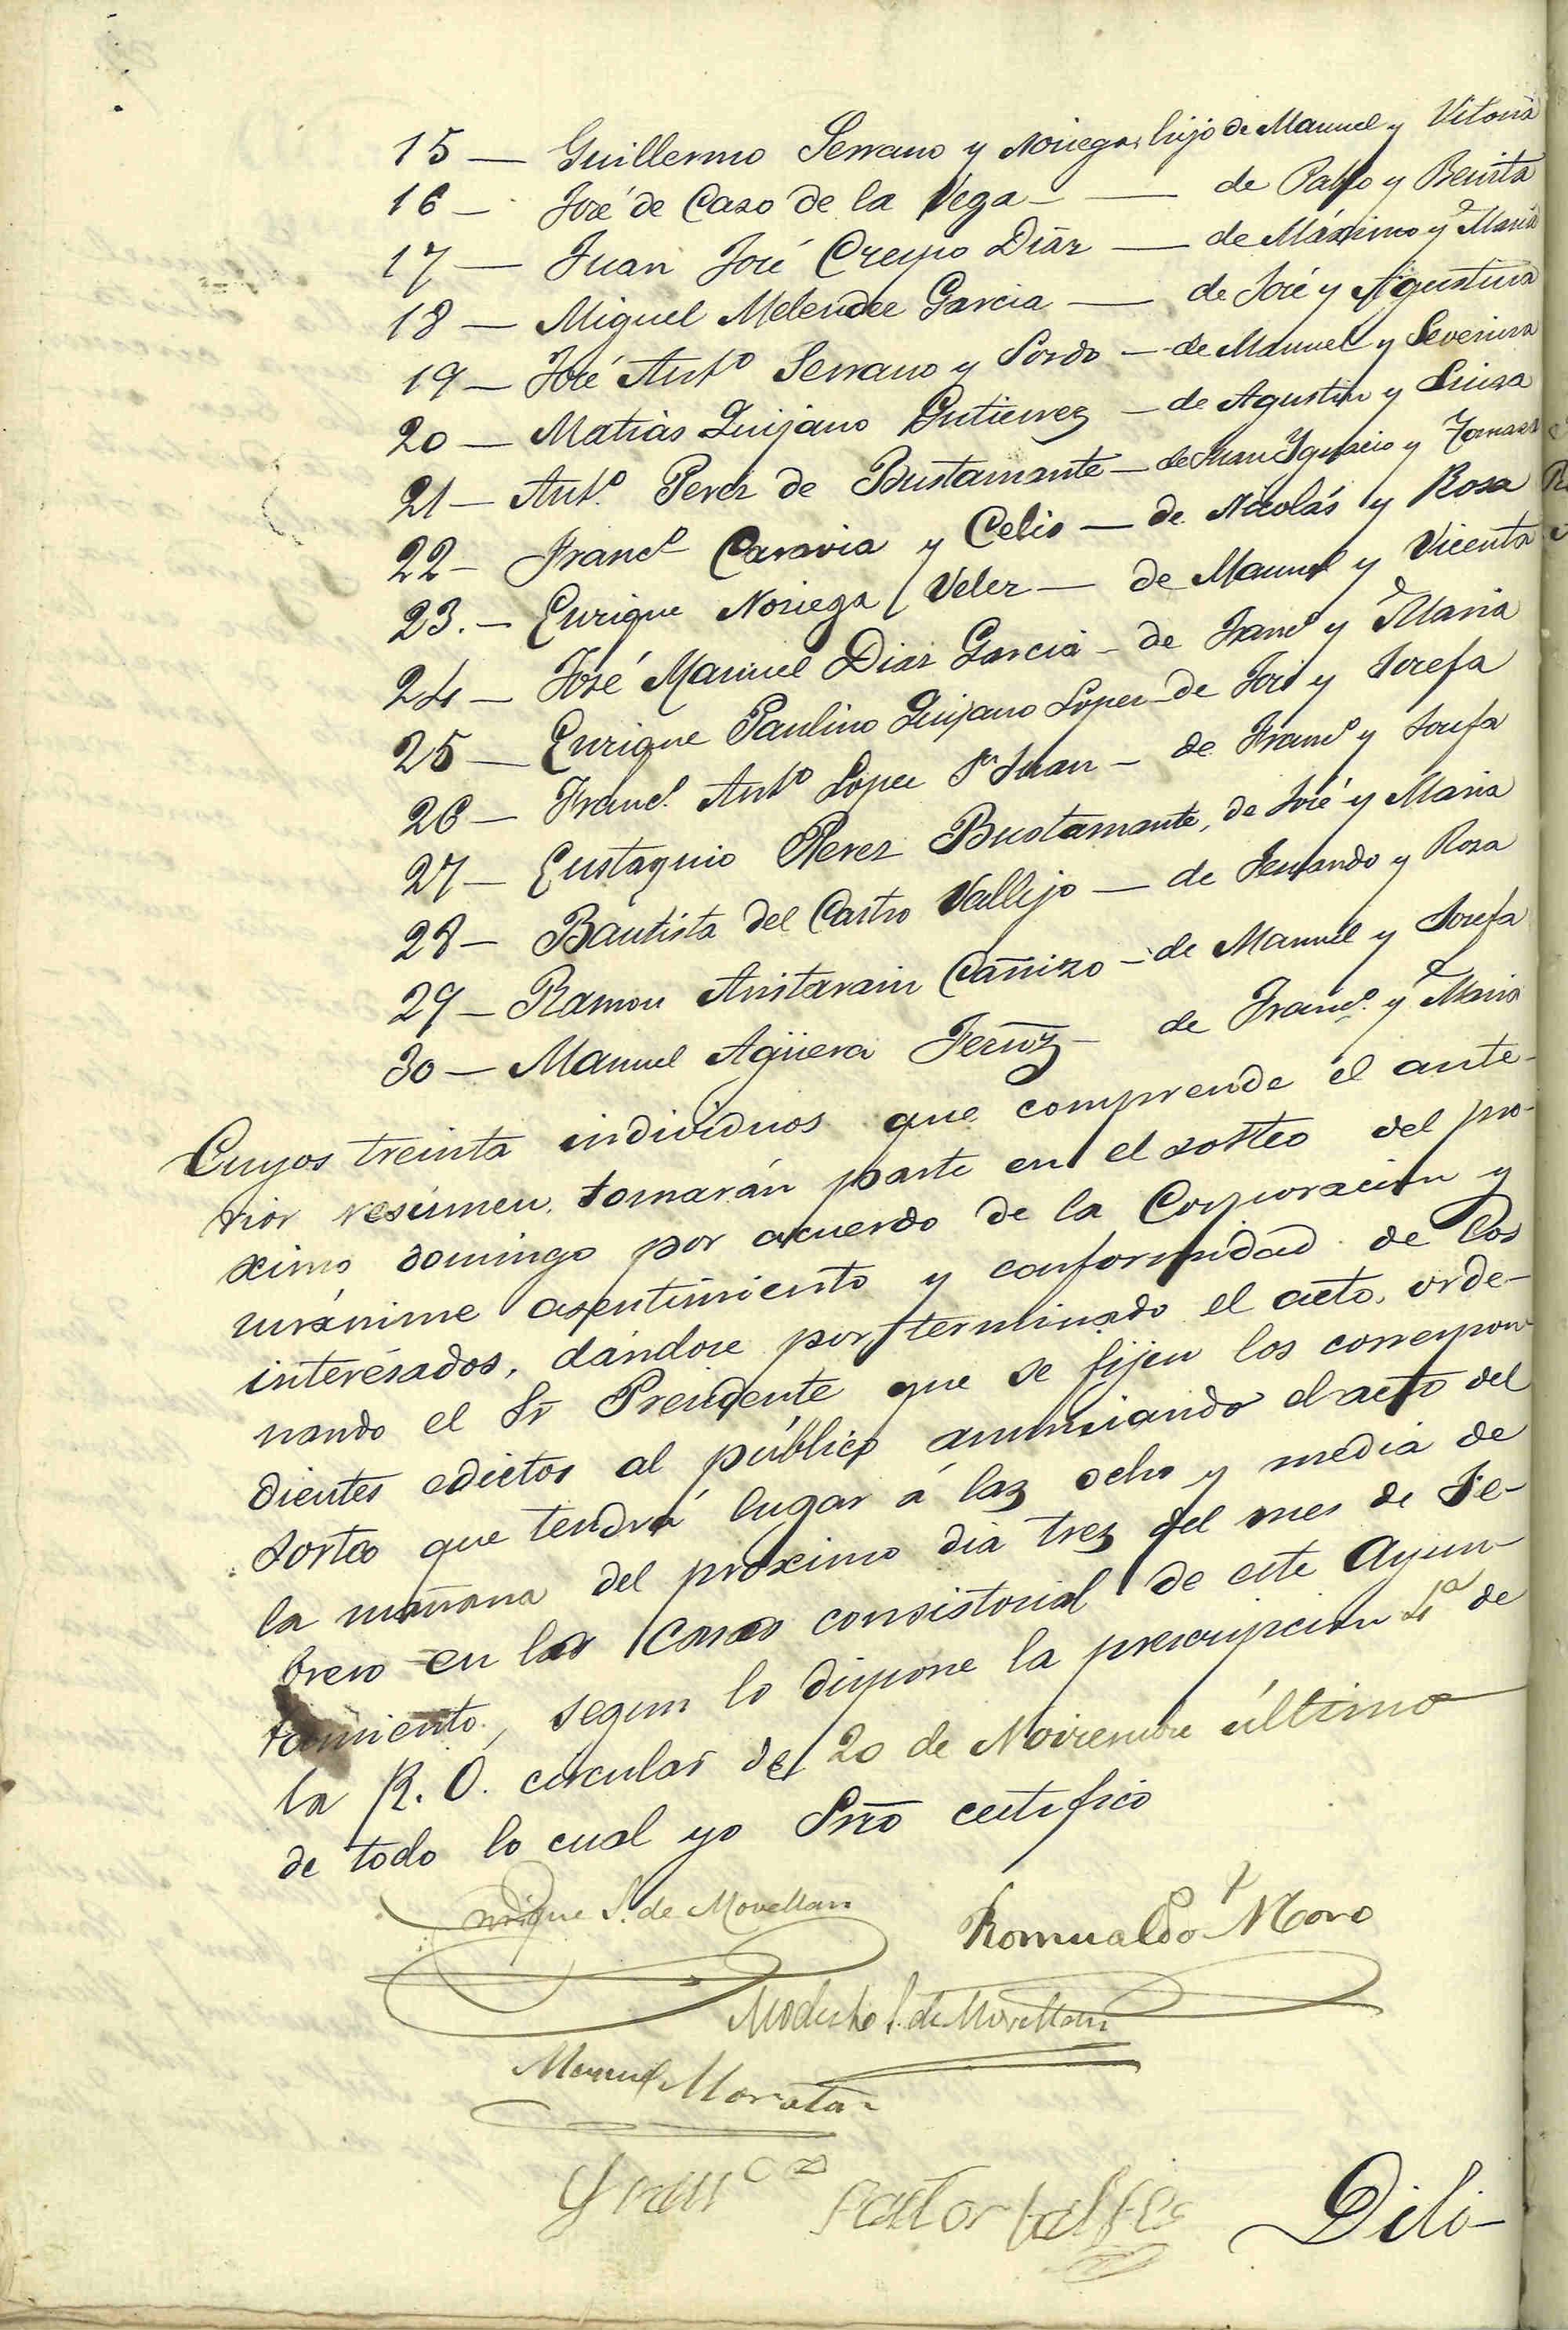 15 — Guillermo Serrano y Noriega, hijo de Manuel y Vitoria
16 — José de Caso de la Vega — — de Pablo y Benita
17 — Juan José Crespo Diaz — de Máximo y Maria
18 — Miguel Melendee Garcia — de José y Agustina
19 — José Antº Serrano y Sordo — de Manuel y Severina
20 — Matias Quijano Gutierrez — de Agustin y Luisa
21 — Antº Perez de Bustamante — de Juan Ygnacio y Tomasa
22 — Francº Caravia y Celis — de Nicolás y Rosa
23. — Enrique Noriega Velez — de Manuel y Vicenta
24 — José Manuel Diaz Garcia — de Francº y Maria
25 — Enrique Paulino Quijano Lopez — de José y Josefa
26 — Francº Antº Lopez Sn Juan — de Francº y Josefa
27 — Eustaquio Perez Bustamante, de José y Maria
28 — Bautista del Castro Vallejo — de Fernando y Rosa
29 — Ramon Aristarain Cañizo — de Manuel y Josefa
30 — Manuel Agüera Fernz — de Francº y Maria
Cuyos treinta individuos que comprende el ante-
rior resúmen, tomarán parte en el sorteo del pró-
ximo domingo por acuerdo de la Corporacion y
unánime asentimiento y conformidad de los
interésados, dándose por terminado el acto, orde-
nando el Sr Presidente que se fijen los correspon-
dientes edictos al público anunciando el acto del
sorteo que tendrá lugar á las ocho y media de
la mañana del próximo dia tres del mes de Fe-
brero en las Casas consistorial de este Ayun-
tamiento, segun lo dispone la prescripcion 4ª de
la R. O. circular de 20 de Noviembre último
de todo lo cual yo Srio certifico
Enrique S. de Movellan
Romualdo Moro
Modesto S. de Movellan
Manuel
Dili-